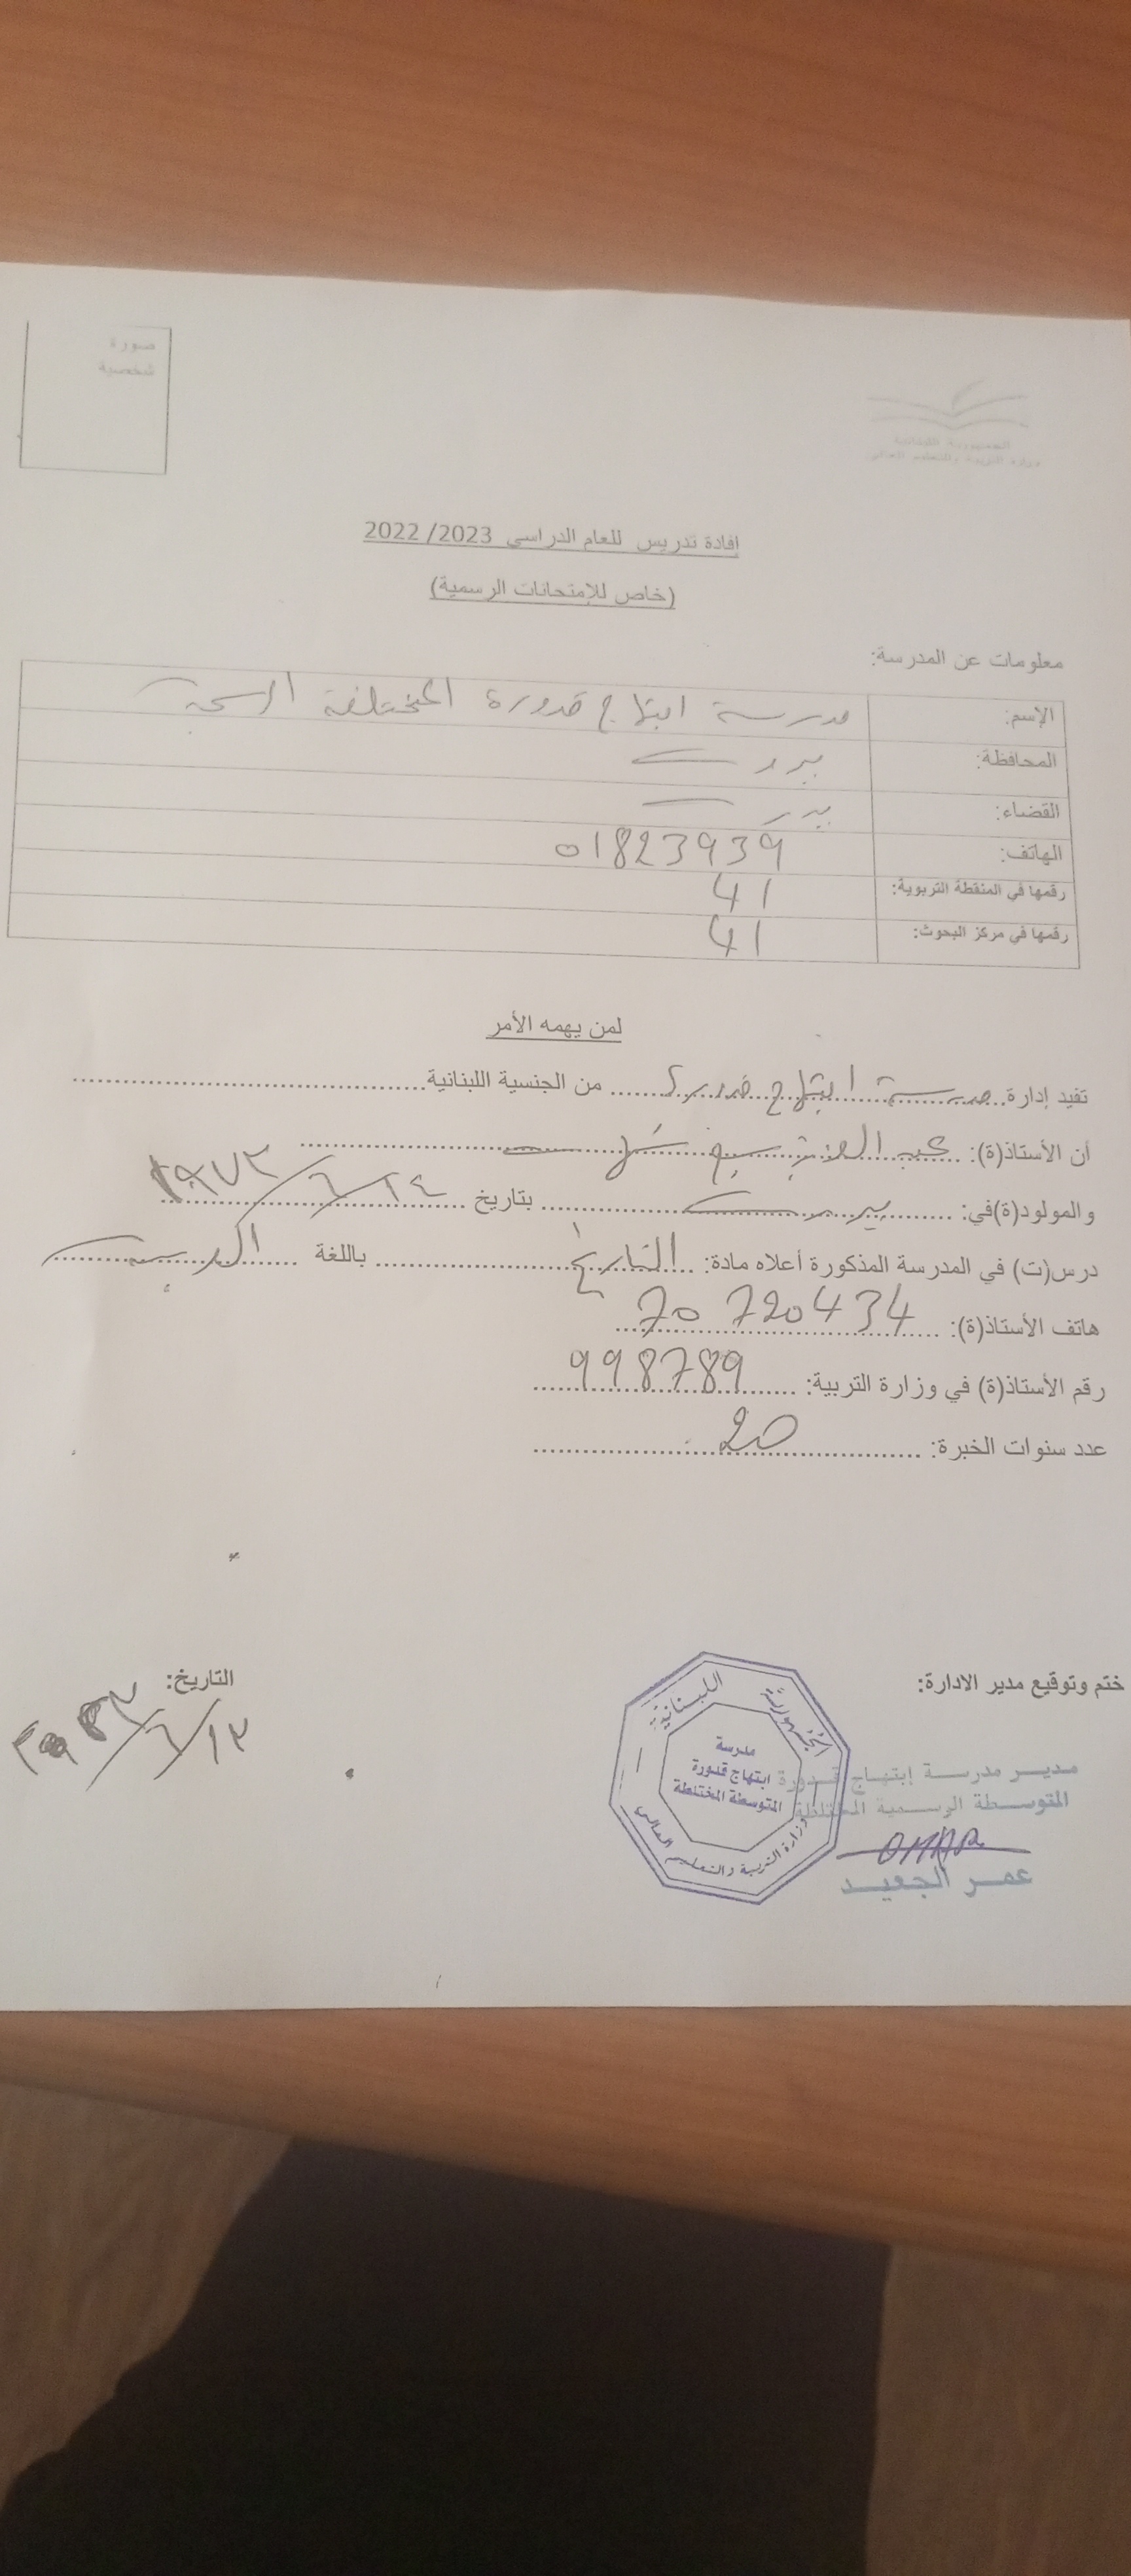 صورة
شخصية
الجمهورية اللبنانية
وزارة التربية والتعليم العالي
افادة تدريس للعام الدراسي 2023/ 2022
(خاص للإمتحانات الرسمية)
معلومات عن المدرسة:
الإسم: مدرسة ابتهاج قدورة المختلطة الرسمية
المحافظة: بيروت
القضاء: بيروت
الهاتف: 01823939
رقمها في المنقطة التربوية: 41
رقمها في مركز البحوث: 41
لمن يهمه الأمر
تفيد إدارة مدرسة ابتهاج قدورة من الجنسية اللبنانية
أن الأستاذ(ة): عبد العزيز
والمولود(ة)في: بيروت بتاريخ ٢٤/٦/١٩٧٢
درس(ت) في المدرسة المذكورة أعلاه مادة: التاريخ باللغة العربية
هاتف الأستاذ(ة): 70 720434
رقم الأستاذ(ة) في وزارة التربية: 998789
عدد سنوات الخبرة: 20
ختم وتوقيع مدير الادارة:
التاريخ:
١٣/٦/
الجمهورية اللبنانية
مدرسة
ابتهاج قدورة
المتوسطة المختلطة
وزارة التربية والتعليم العالي
مدير مدرسة إبتهاج قدورة
المتوسطة الرسمية المختلطة
OMAR
عمر الجعيد